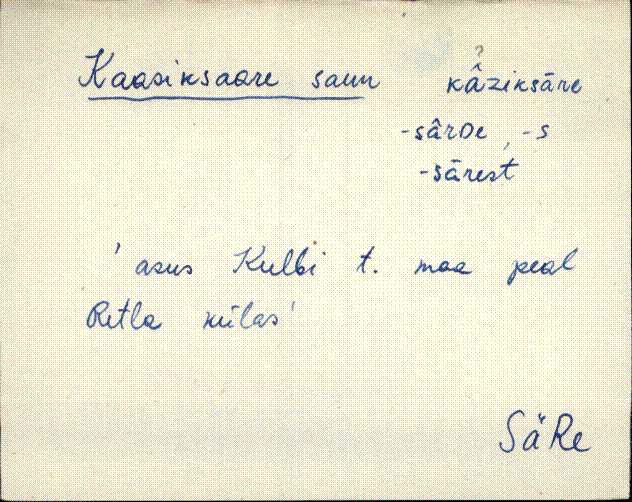 Kaasiksaare saun kâziksāre
-sârDe, -s
-sārest
' asus Kulbi t. maa peal
Retla külas'
SäRe